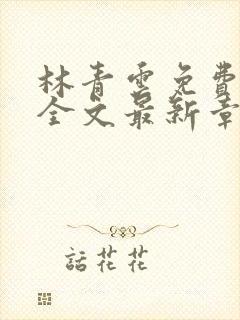 林青雲免費
全文最新章
話花花